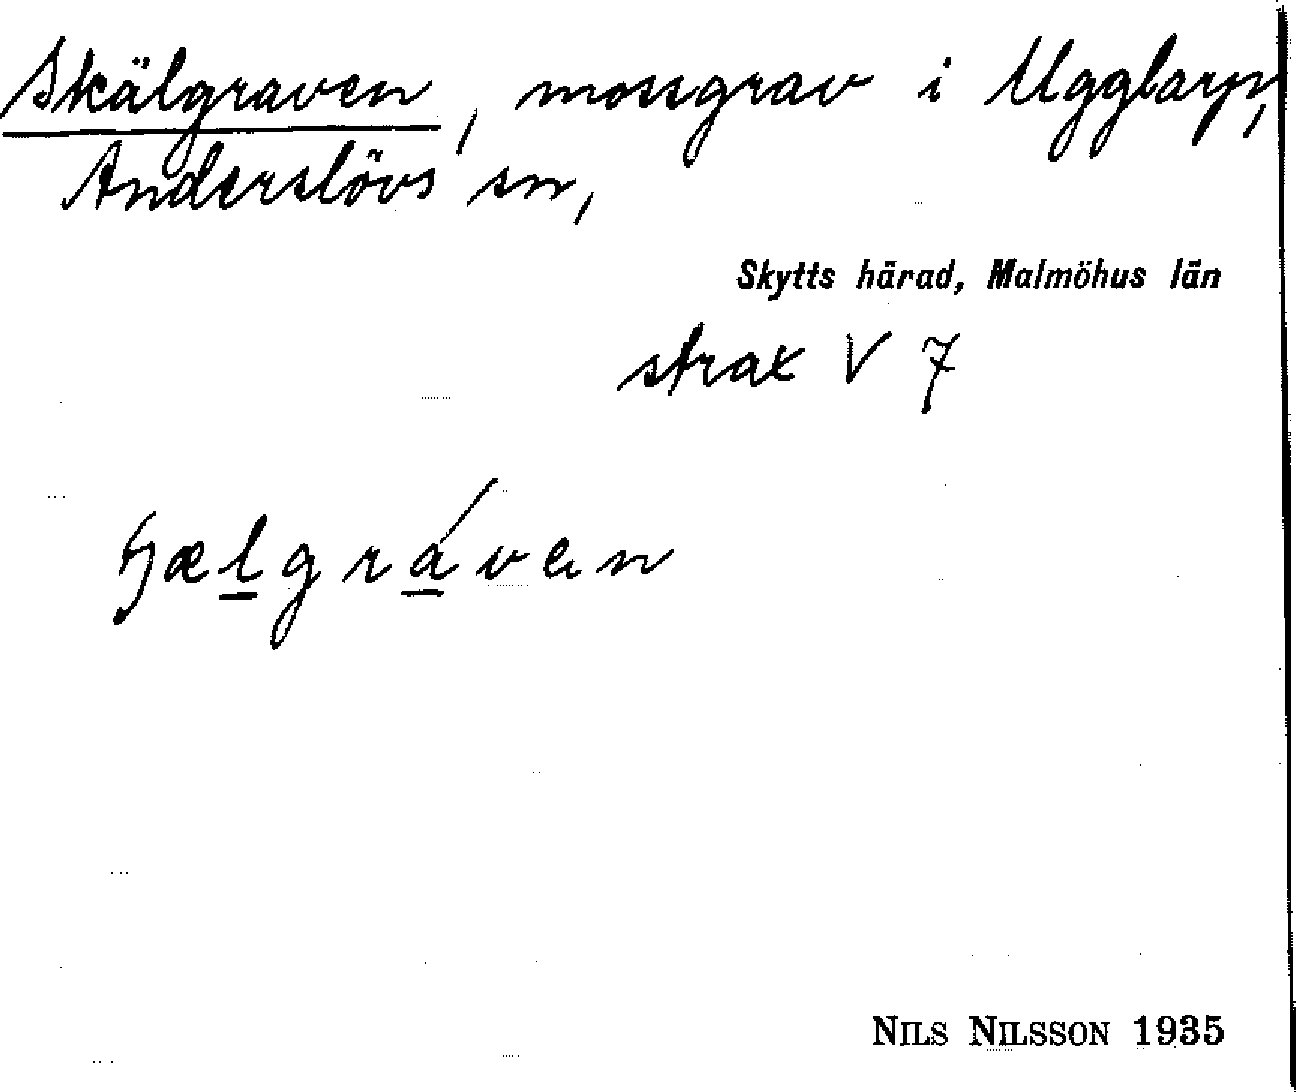 Skälgraven, mossgrav i Ugglarp,
Anderslövs sn,
Skytts härad, Malmöhus län
strax V 7
NILS NILSSON 1935